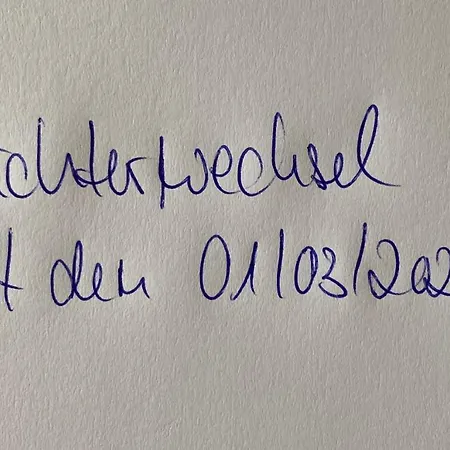 chterwechsel
t dem 01/03/202